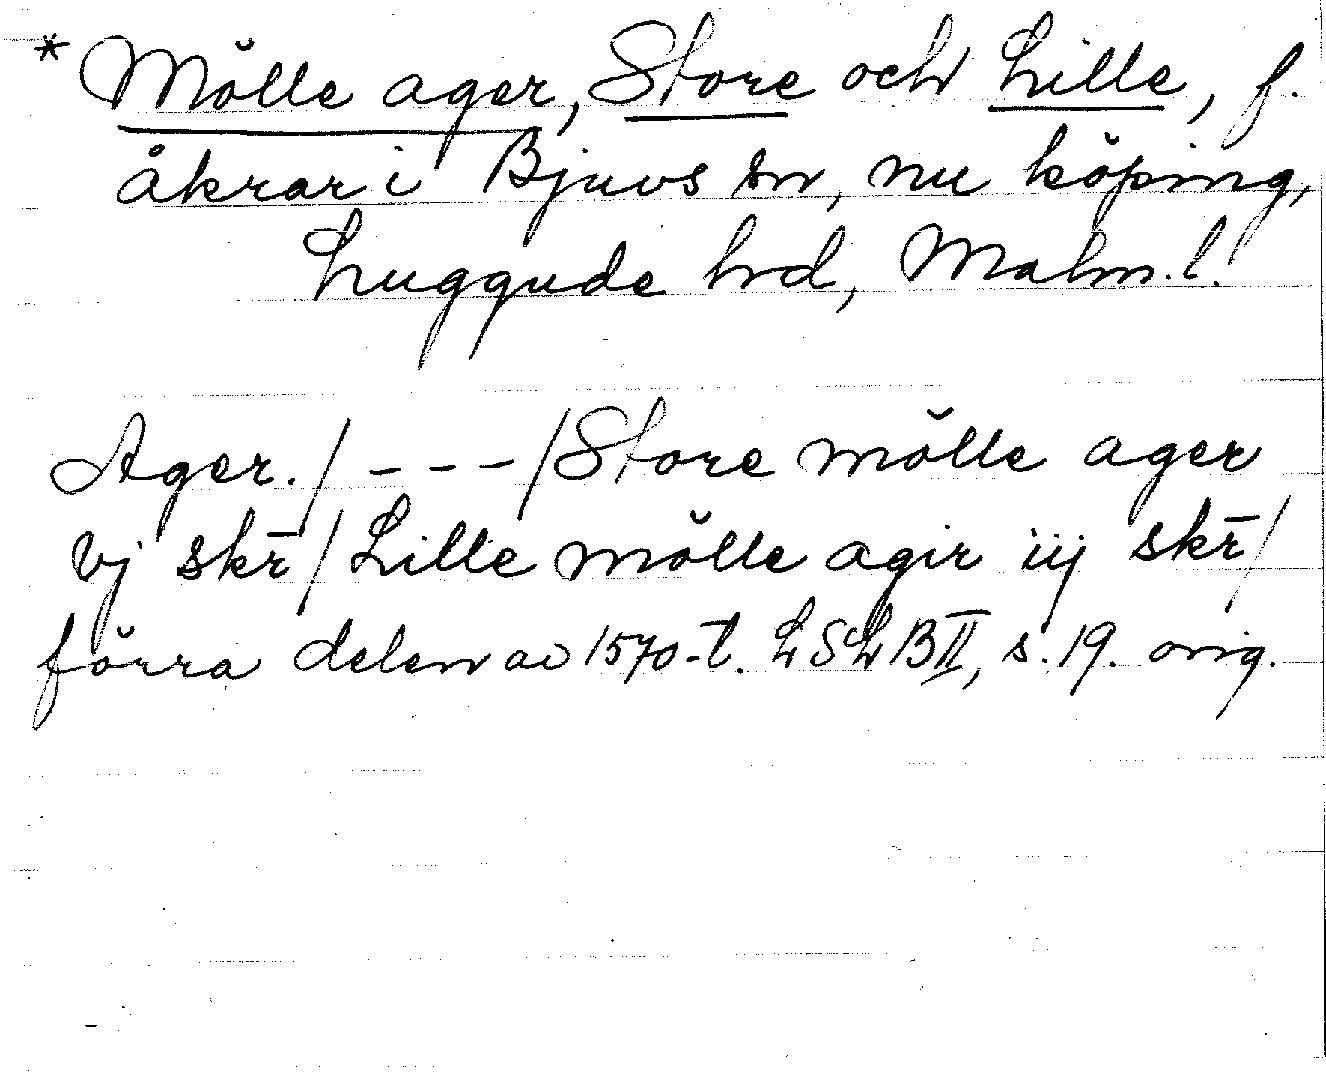 * Mölle ager, Store och Lille, f.
åkrar i Bjuvs sn, nu köping,
Luggude hrd, Malm. l.
Ager. / - - - / Store mölle ager
vj skr̄ / Lille mölle agir iij skr̄ /
förra delen av 1570-t. LSLB II, s. 19. orig.